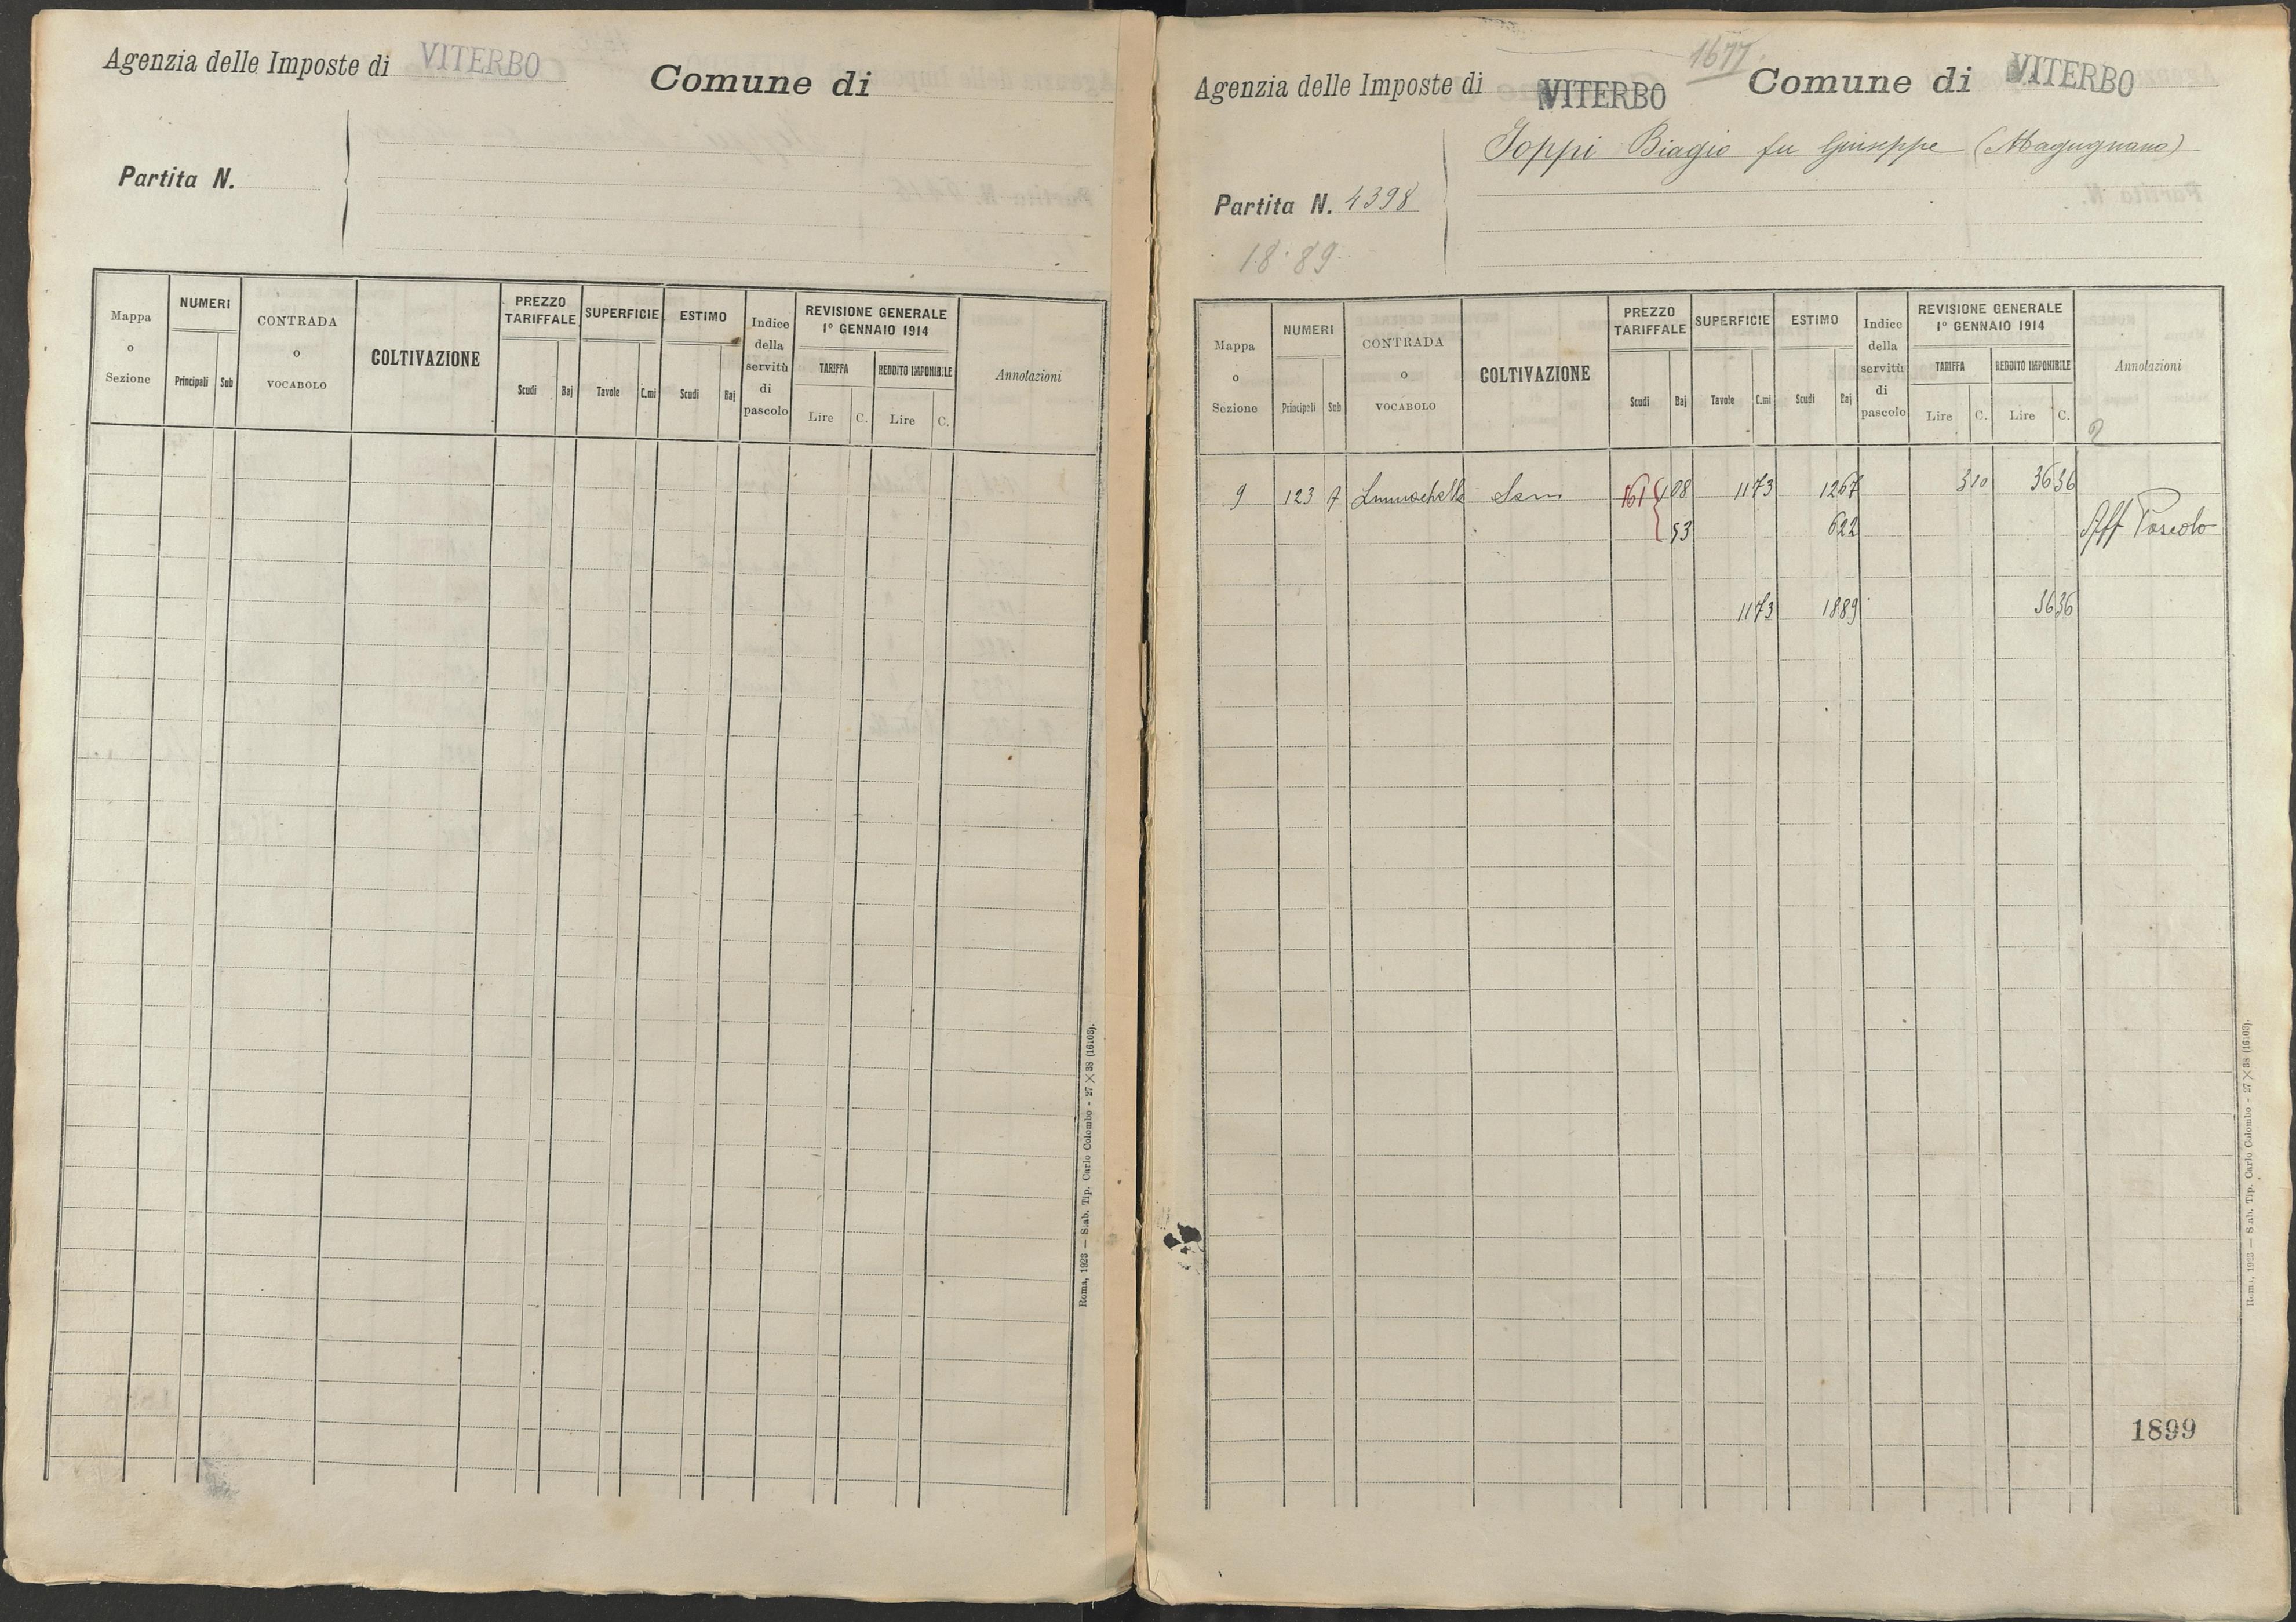 Agenzia delle Imposte di VITERBO
Comune di
Partita N.
Mappa o Sezione
NUMERI
Principali
Sub
CONTRADA o VOCABOLO
COLTIVAZIONE
PREZZO TARIFFALE
Scudi
Baj
SUPERFICIE
Tavole
C.mi
ESTIMO
Scudi
Baj
Indice della servitù di pascolo
REVISIONE GENERALE
1° GENNAIO 1914
TARIFFA
REDDITO IMPONIBILE
Lire
C.
Lire
C.
Annotazioni
Roma, 1923 — Stab. Tip. Carlo Colombo - 27 × 38 (16103).
1677
Agenzia delle Imposte di VITERBO
Comune di VITERBO
Joppi Biagio fu Giuseppe (Magugnano)
Partita N. 4398
18.89
Mappa o Sezione
NUMERI
Principali
Sub
CONTRADA o VOCABOLO
COLTIVAZIONE
PREZZO TARIFFALE
Scudi
Baj
SUPERFICIE
Tavole
C.mi
ESTIMO
Scudi
Baj
Indice della servitù di pascolo
REVISIONE GENERALE
1° GENNAIO 1914
TARIFFA
REDDITO IMPONIBILE
Lire
C.
Lire
C.
Annotazioni
2
9 123 Sem 161 108 1173 1267 310 3636
53 622 Aff Pascolo
1173 1889 3636
1899
Roma, 1923 — Stab. Tip. Carlo Colombo - 27 × 38 (16103).